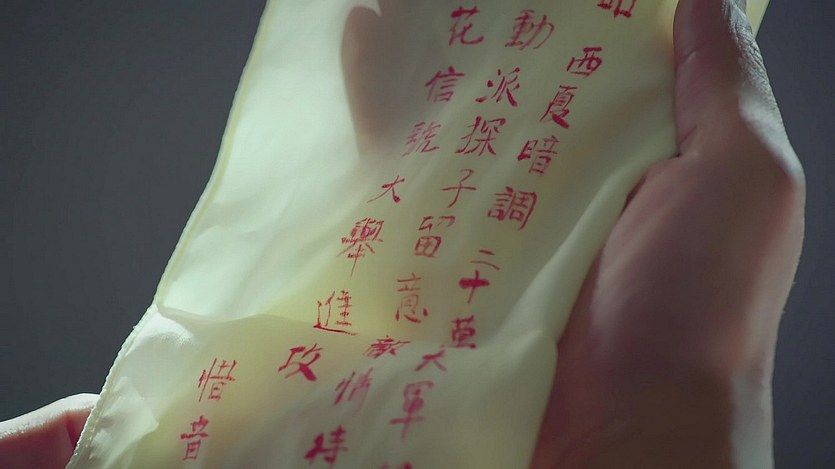 西夏暗調二十萬大軍
動派探子留意敵情待
花信號大舉進攻
惜昔